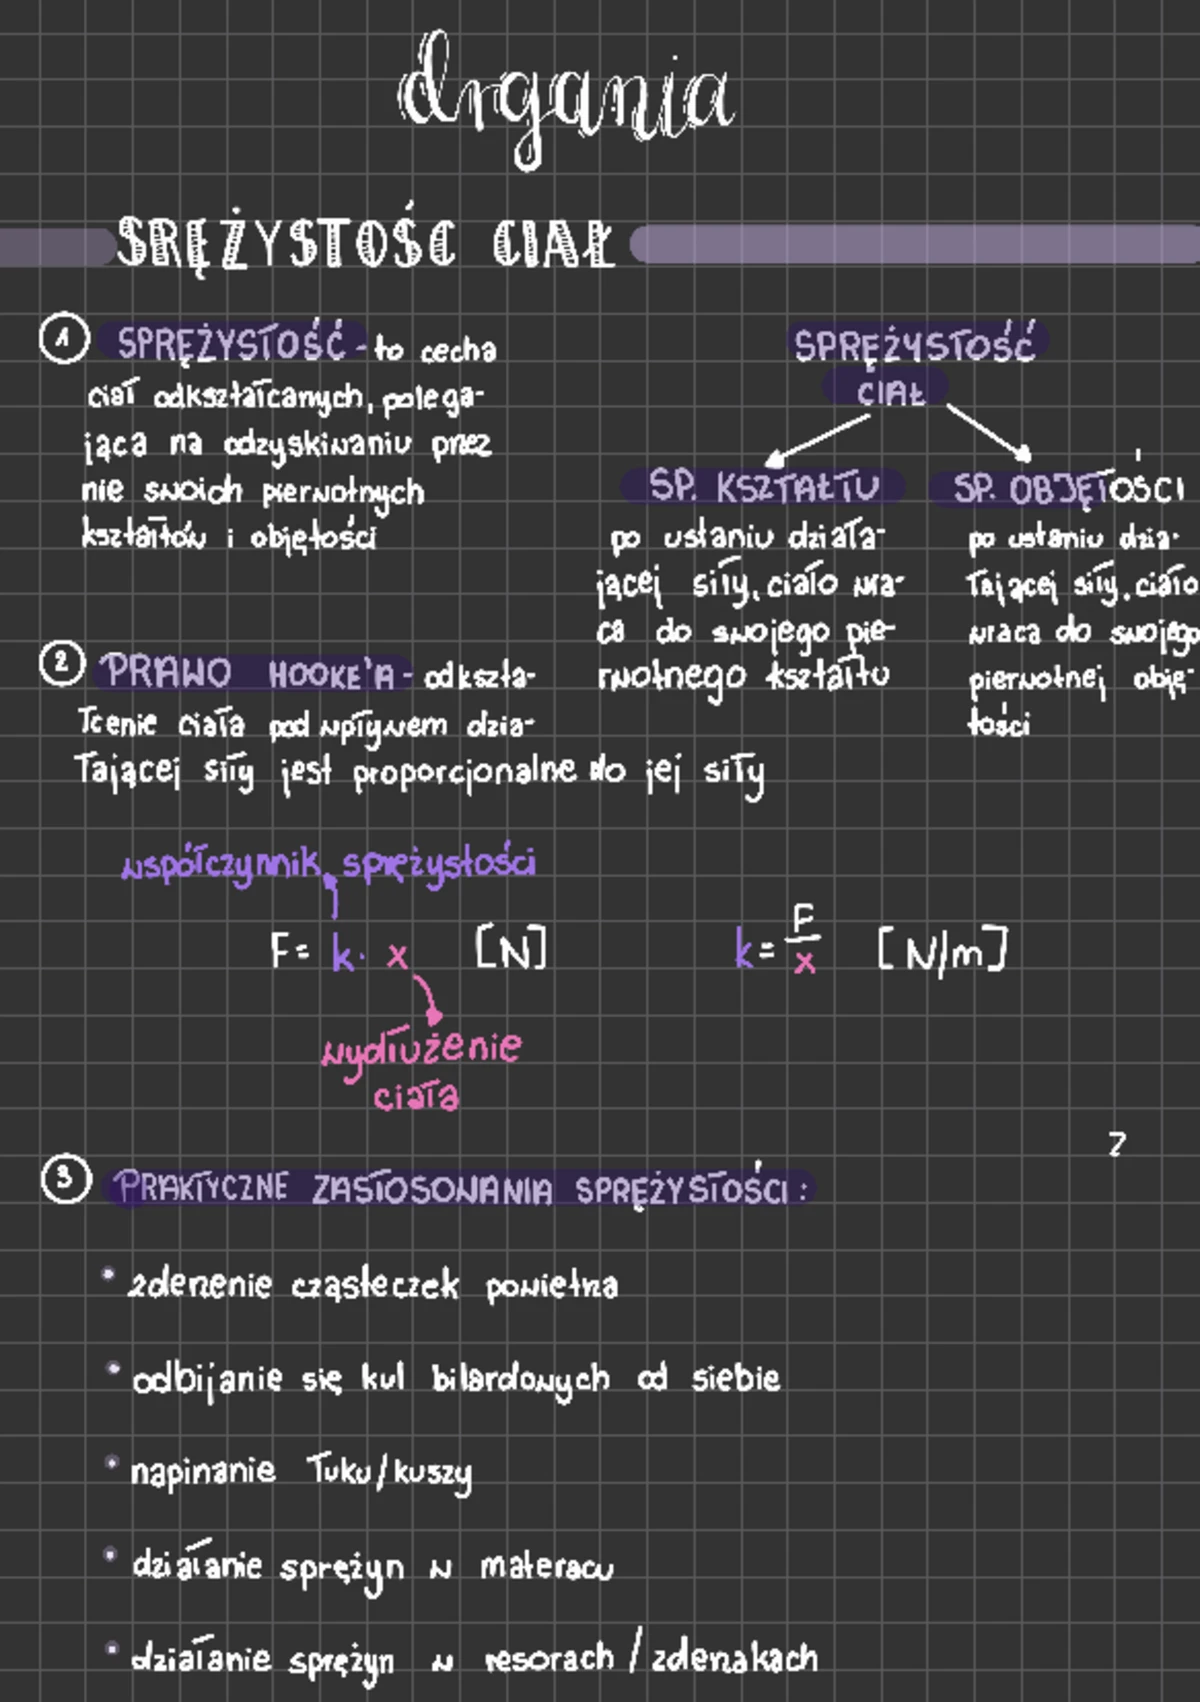 drgania
SRĘŻYSTOŚC CIAŁ
1 SPRĘŻYSTOŚĆ - to cecha
ciał odkształcanych, polega-
jąca na odzyskiwaniu przez
nie swoich pierwotnych
kształtów i objętości
SPRĘŻYSTOŚĆ
CIAŁ
SP. KSZTAŁTU
po ustaniu działa-
jącej siły, ciało wra-
ca do swojego pie-
rwotnego kształtu
SP. OBJĘTOŚCI
po ustaniu dzia-
łającej siły, ciało
wraca do swojego
pierwotnej obję-
tości
2 PRAWO HOOKE'A - odkszta-
łcenie ciała pod wpływem dzia-
łającej siły jest proporcjonalne do jej siły
współczynnik sprężystości
F = k · x [N]
wydłużenie
ciała
k = F/x [N/m]
2
3 PRAKTYCZNE ZASTOSOWANIA SPRĘŻYSTOŚCI:
• zderzenie cząsteczek powietrza
• odbijanie się kul bilardowych od siebie
• napinanie łuku/kuszy
• działanie sprężyn w materacu
• działanie sprężyn w resorach / zderzakach